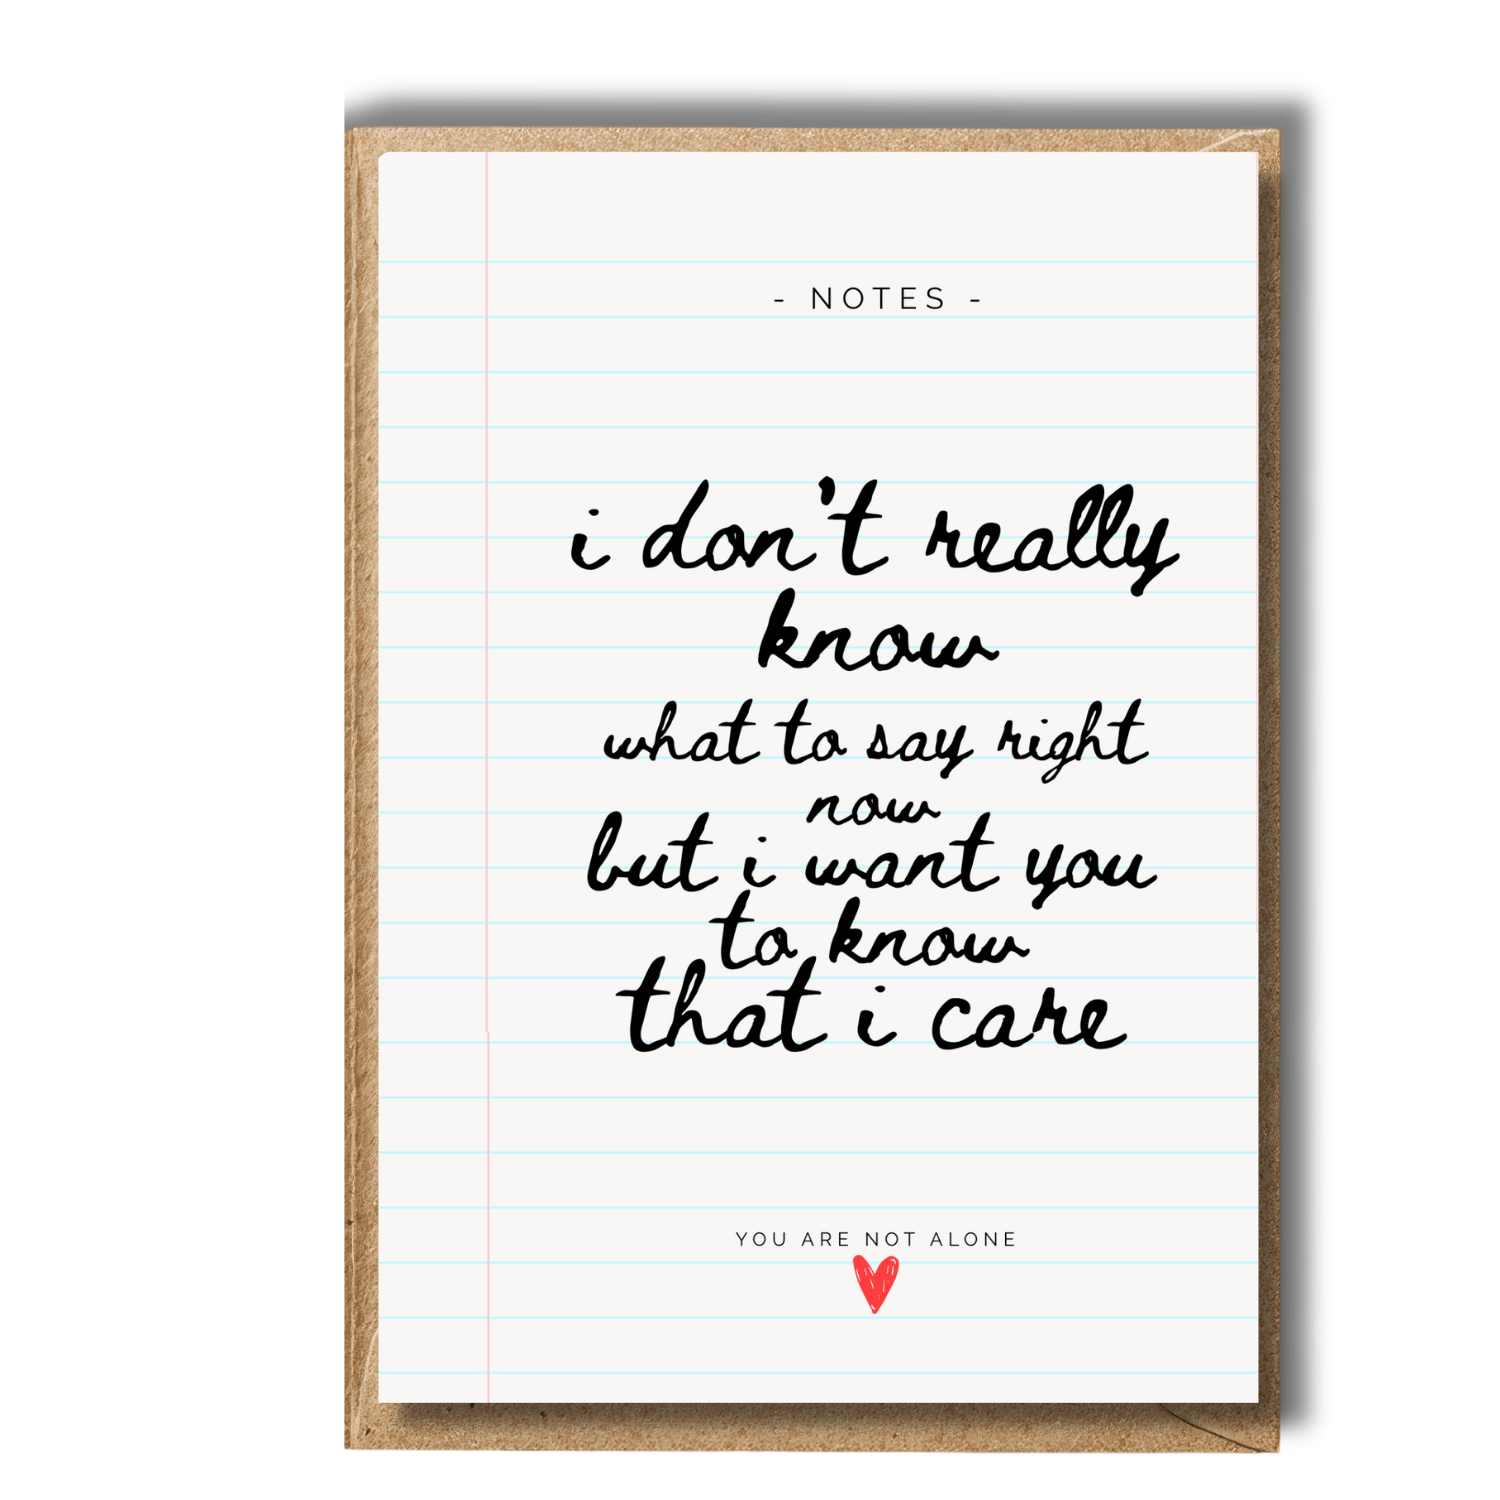 - NOTES -
i don't really
know
what to say right
now
but i want you
to know
that i care
YOU ARE NOT ALONE